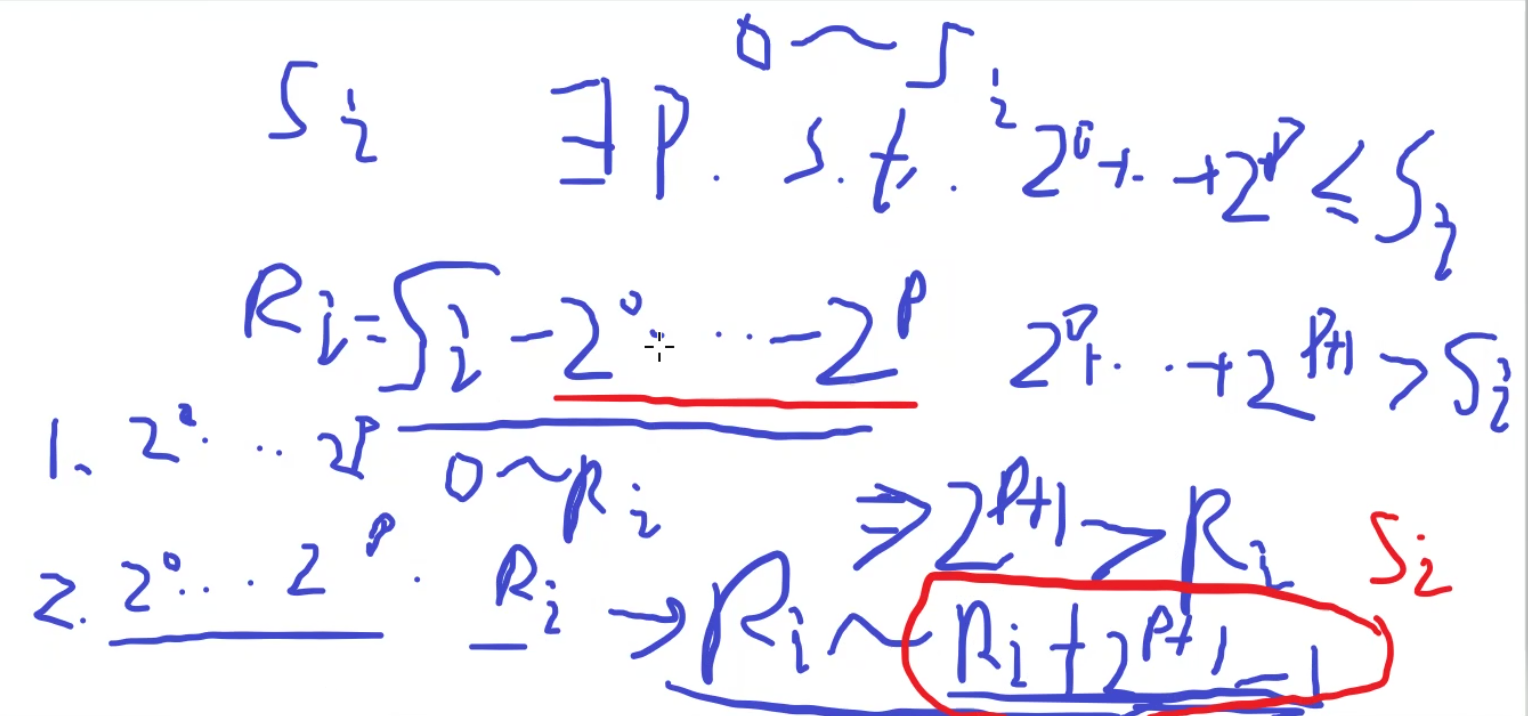 0 ~ S_i
S_i ∃ p. s.t. 2^0 + ·· + 2^p ≤ S_i
R_i = S_i - 2^0 ··· - 2^p 2^0 + ·· + 2^{p+1} > S_i
1. 2^0 ··· 2^p 0 ~ R_i ⇒ 2^{p+1} > R_i S_i
2. 2^0 ··· 2^p · R_i → R_i ~ R_i + 2^{p+1} - 1